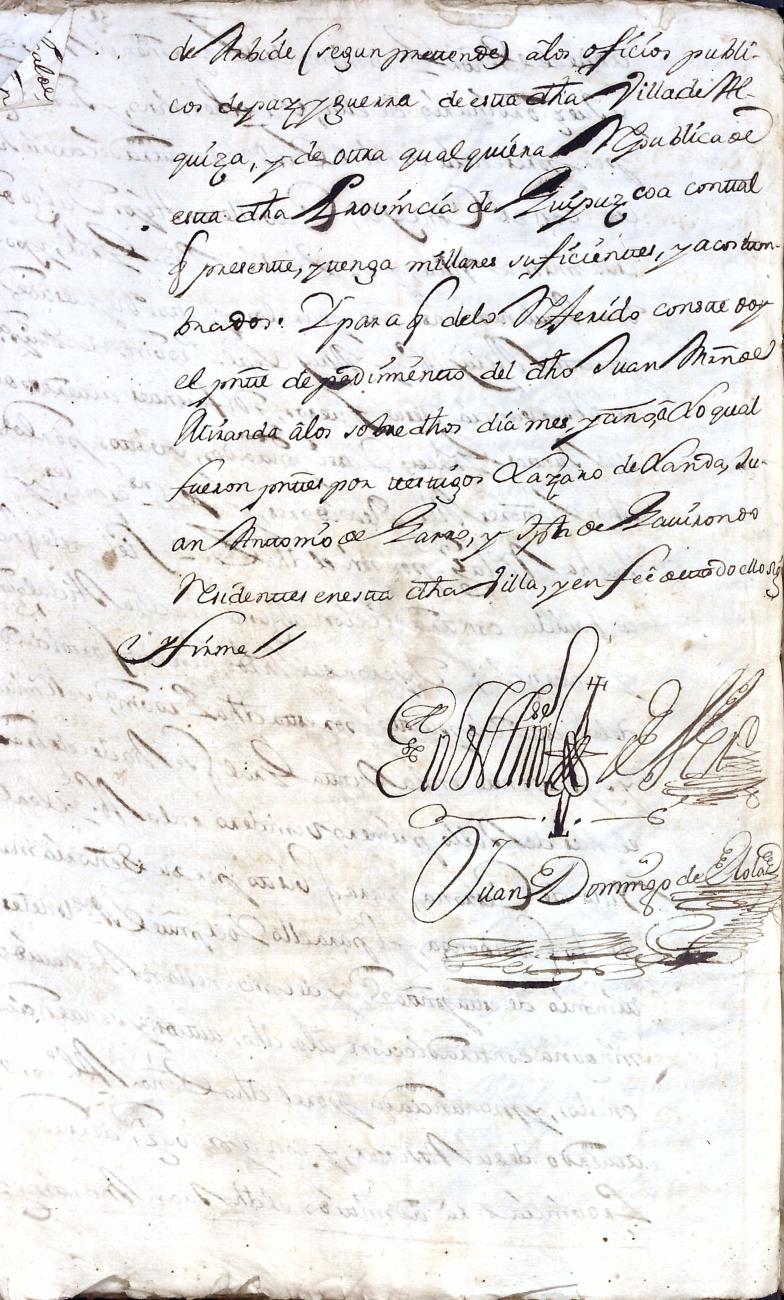 de Arbide (segun pretende) âlos oficios publi-
cos de paz, y guerra de esta dha Villa de Al-
quiza, y de otra qualquiera Republica de
esta dha Provincia de Guipuzcoa contal
q presente, y tenga millares suficientes, y acostum-
brados: Y para q delo Referido conste doy
el pnte de pedimiento del dho Juan
Miranda âlos sobre dhos dia mes, y año â lo qual
fueron pntes por testigos Lazaro de Landa, Ju-
an Antonio de Garro, y Jph de Gavirondo
Residentes en esta dha Villa, y en feê de todo ello
Signe
y firme //
En testimo de Verd
Juan Domingo de Elola